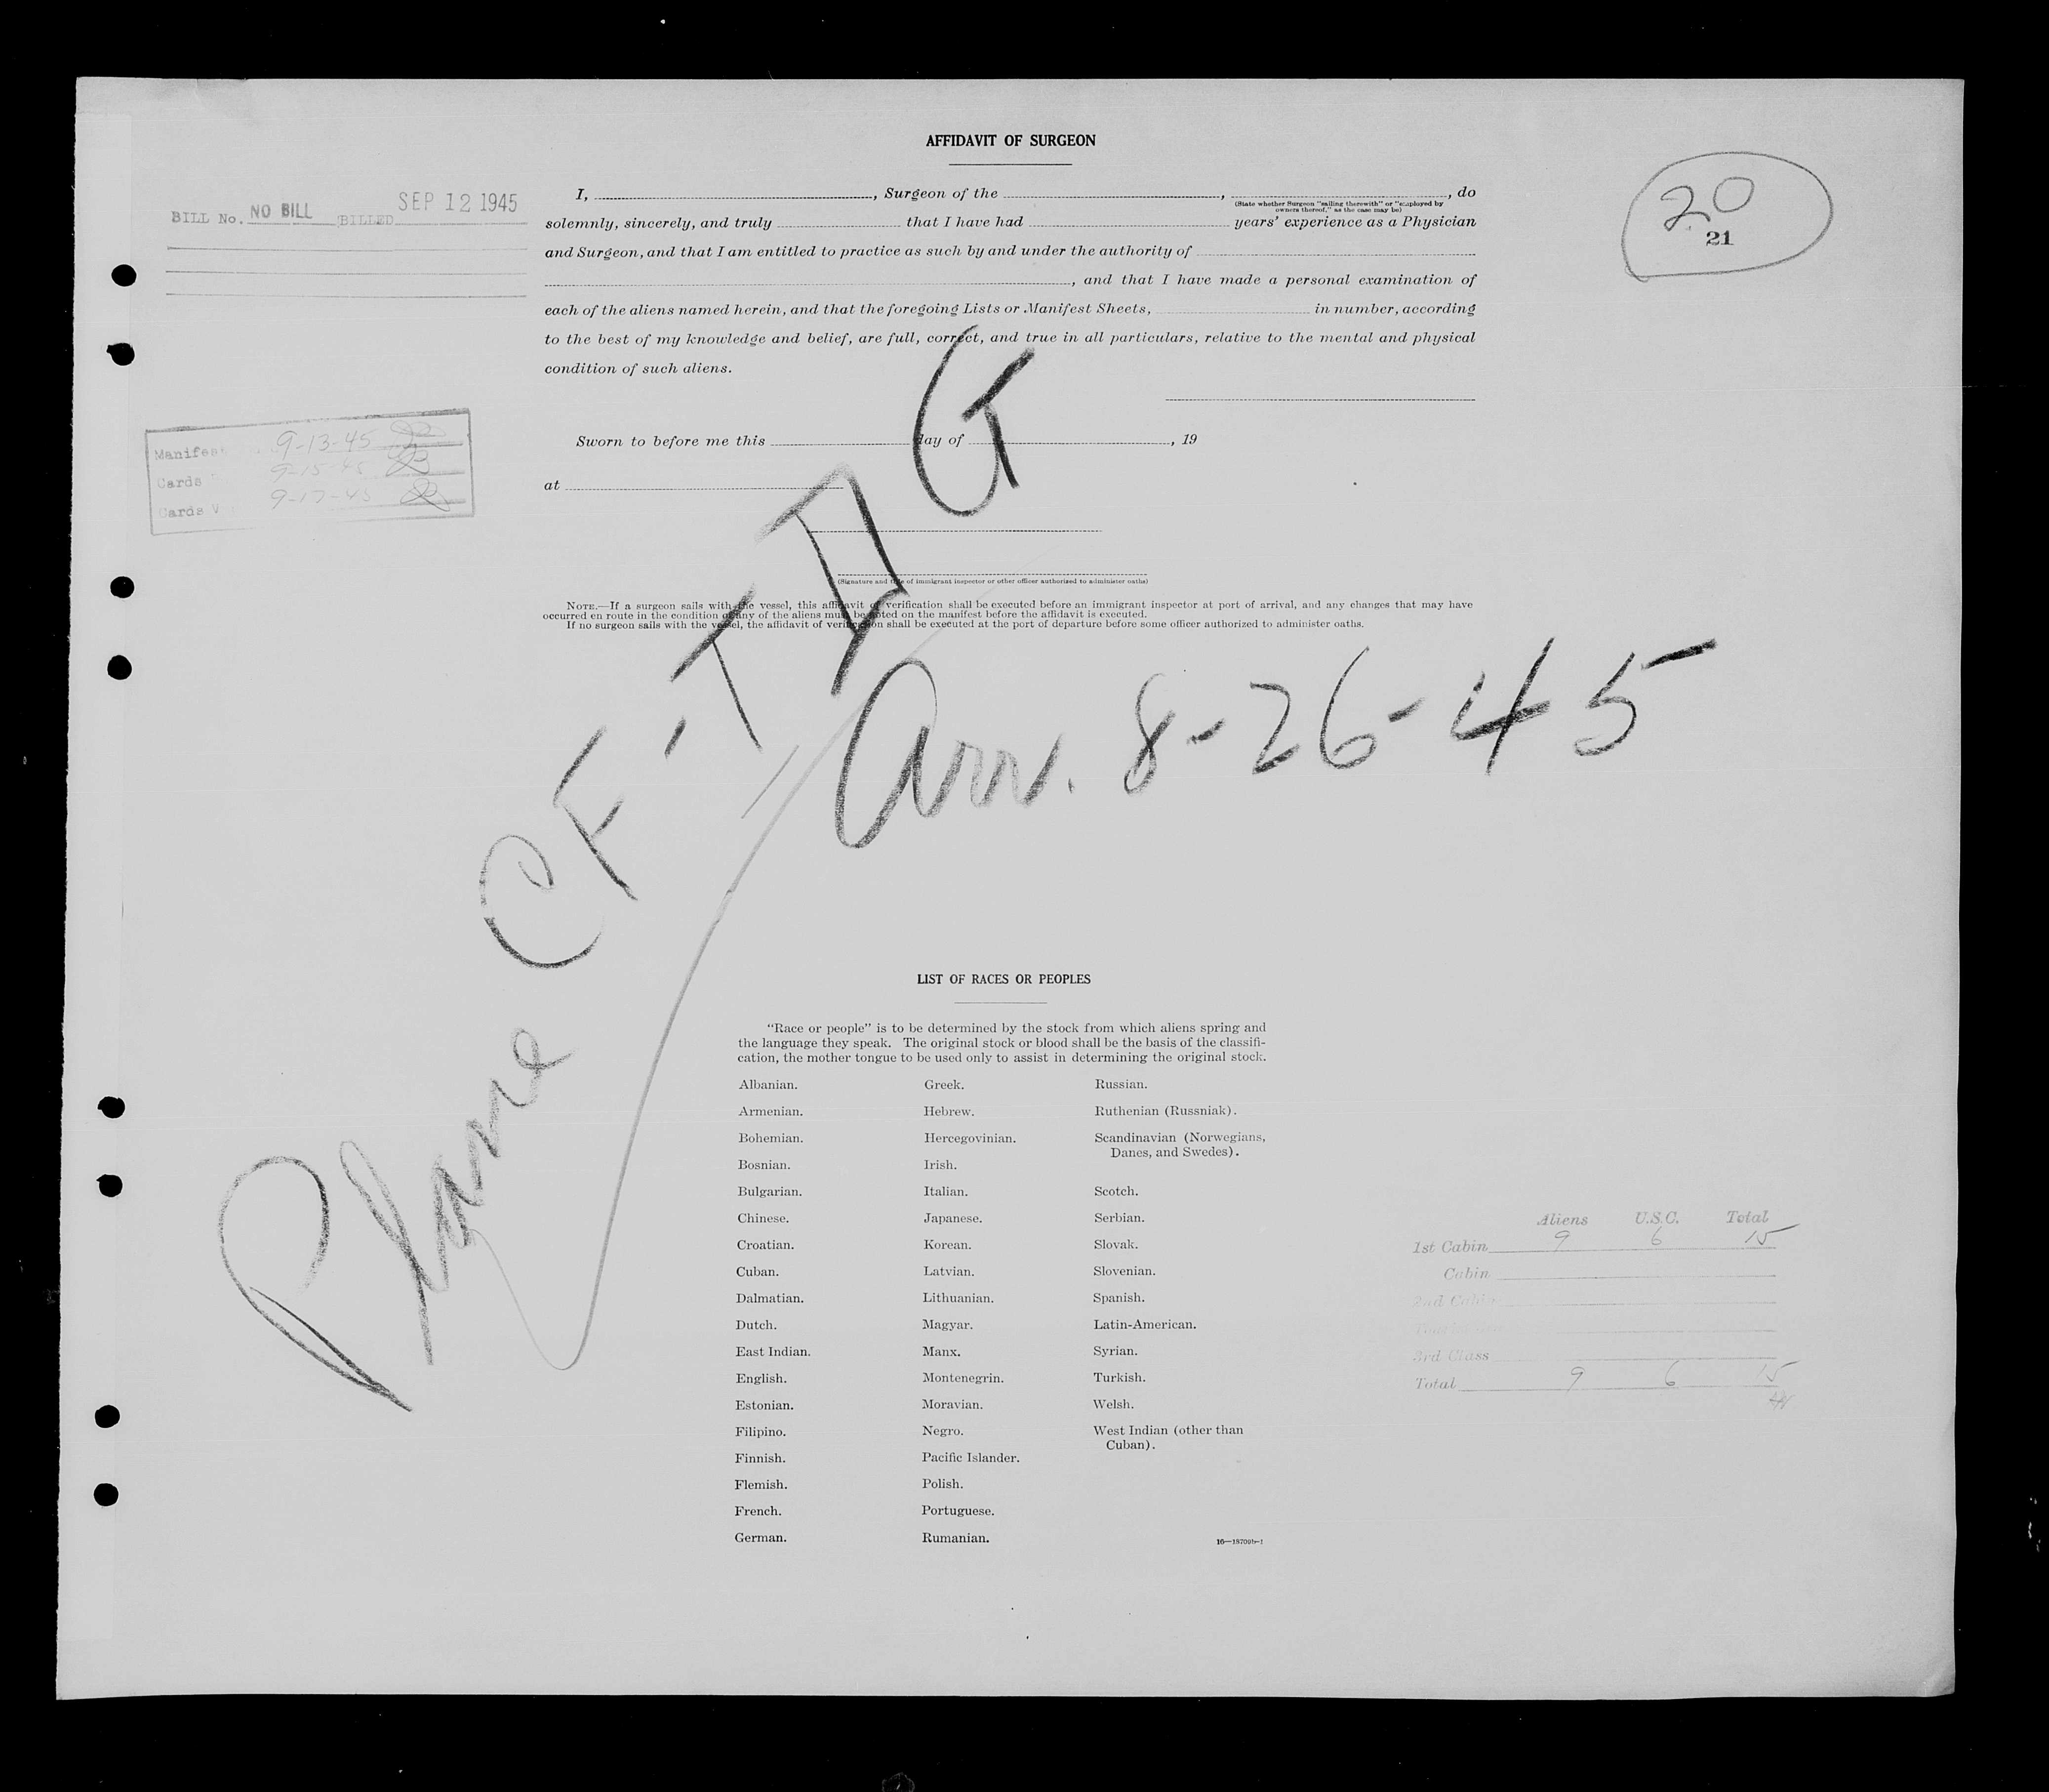 AFFIDAVIT OF SURGEON
BILL No. NO BILL BILLED SEP 12 1945
20
21
I, , Surgeon of the , , do
(State whether Surgeon "sailing therewith" or "employed by
owners thereof," as the case may be)
solemnly, sincerely, and truly that I have had years' experience as a Physician
and Surgeon, and that I am entitled to practice as such by and under the authority of
, and that I have made a personal examination of
each of the aliens named herein, and that the foregoing Lists or Manifest Sheets, in number, according
to the best of my knowledge and belief, are full, correct, and true in all particulars, relative to the mental and physical
condition of such aliens.
Manifest 9-13-45
Cards 9-15-45
Cards V 9-17-45
Sworn to before me this day of , 19
at
(Signature and title of immigrant inspector or other officer authorized to administer oaths)
NOTE.—If a surgeon sails with the vessel, this affidavit or verification shall be executed before an immigrant inspector at port of arrival, and any changes that may have
occurred en route in the condition of any of the aliens must be noted on the manifest before the affidavit is executed.
If no surgeon sails with the vessel, the affidavit of verification shall be executed at the port of departure before some officer authorized to administer oaths.
Plane CF-TDG
Arr. 8-26-45
LIST OF RACES OR PEOPLES
"Race or people" is to be determined by the stock from which aliens spring and
the language they speak. The original stock or blood shall be the basis of the classifi-
cation, the mother tongue to be used only to assist in determining the original stock.
Albanian.
Armenian.
Bohemian.
Bosnian.
Bulgarian.
Chinese.
Croatian.
Cuban.
Dalmatian.
Dutch.
East Indian.
English.
Estonian.
Filipino.
Finnish.
Flemish.
French.
German.
Greek.
Hebrew.
Hercegovinian.
Irish.
Italian.
Japanese.
Korean.
Latvian.
Lithuanian.
Magyar.
Manx.
Montenegrin.
Moravian.
Negro.
Pacific Islander.
Polish.
Portuguese.
Rumanian.
Russian.
Ruthenian (Russniak).
Scandinavian (Norwegians,
Danes, and Swedes).
Scotch.
Serbian.
Slovak.
Slovenian.
Spanish.
Latin-American.
Syrian.
Turkish.
Welsh.
West Indian (other than
Cuban).
Aliens U.S.C. Total
1st Cabin 9 6 15
Cabin
2nd Cabin
3rd Class
Total 9 6 15